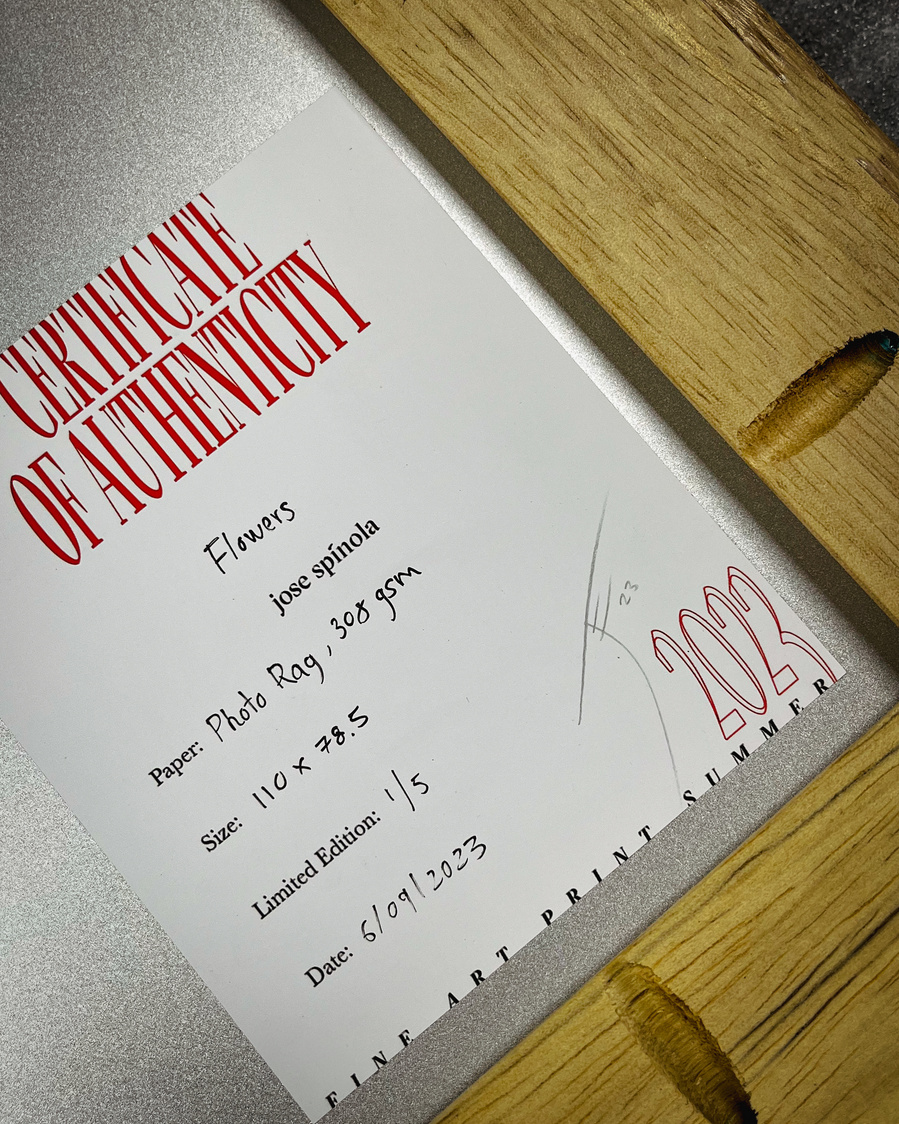 CERTIFICATE
OF AUTHENTICITY
Flowers
jose spínola
Paper: Photo Rag, 308 gsm
Size: 110 x 78.5
Limited Edition: 1/5
Date: 6/09/2023
23
2023
FINE ART PRINT SUMMER